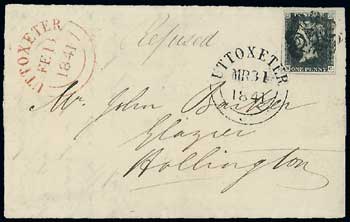 Refused
UTTOXETER
FE 1
1841
UTTOXETER
MR 31
1841
ONE PENNY
Mr. John
Glazier
Hollington